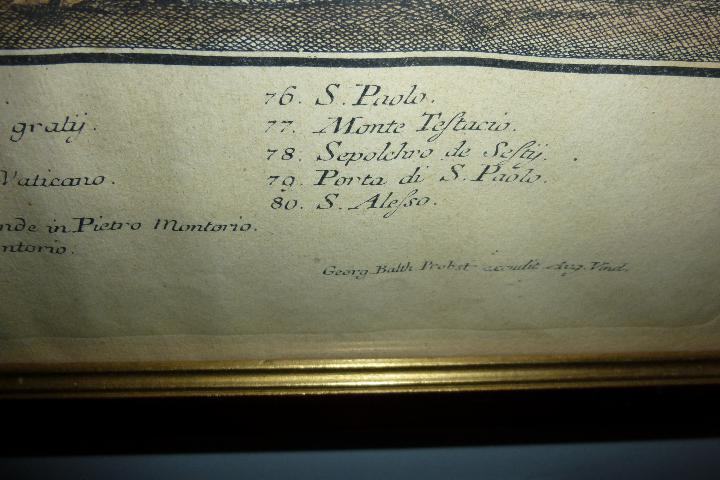 gratij.
Vaticano.
nde in Pietro Montorio.
ntorio.
76. S. Paolo.
77. Monte Testacio.
78. Sepolchro de Sestij.
79. Porta di S. Paolo.
80. S. Alesso.
Georg Balth Probst excudit Aug. Vind.